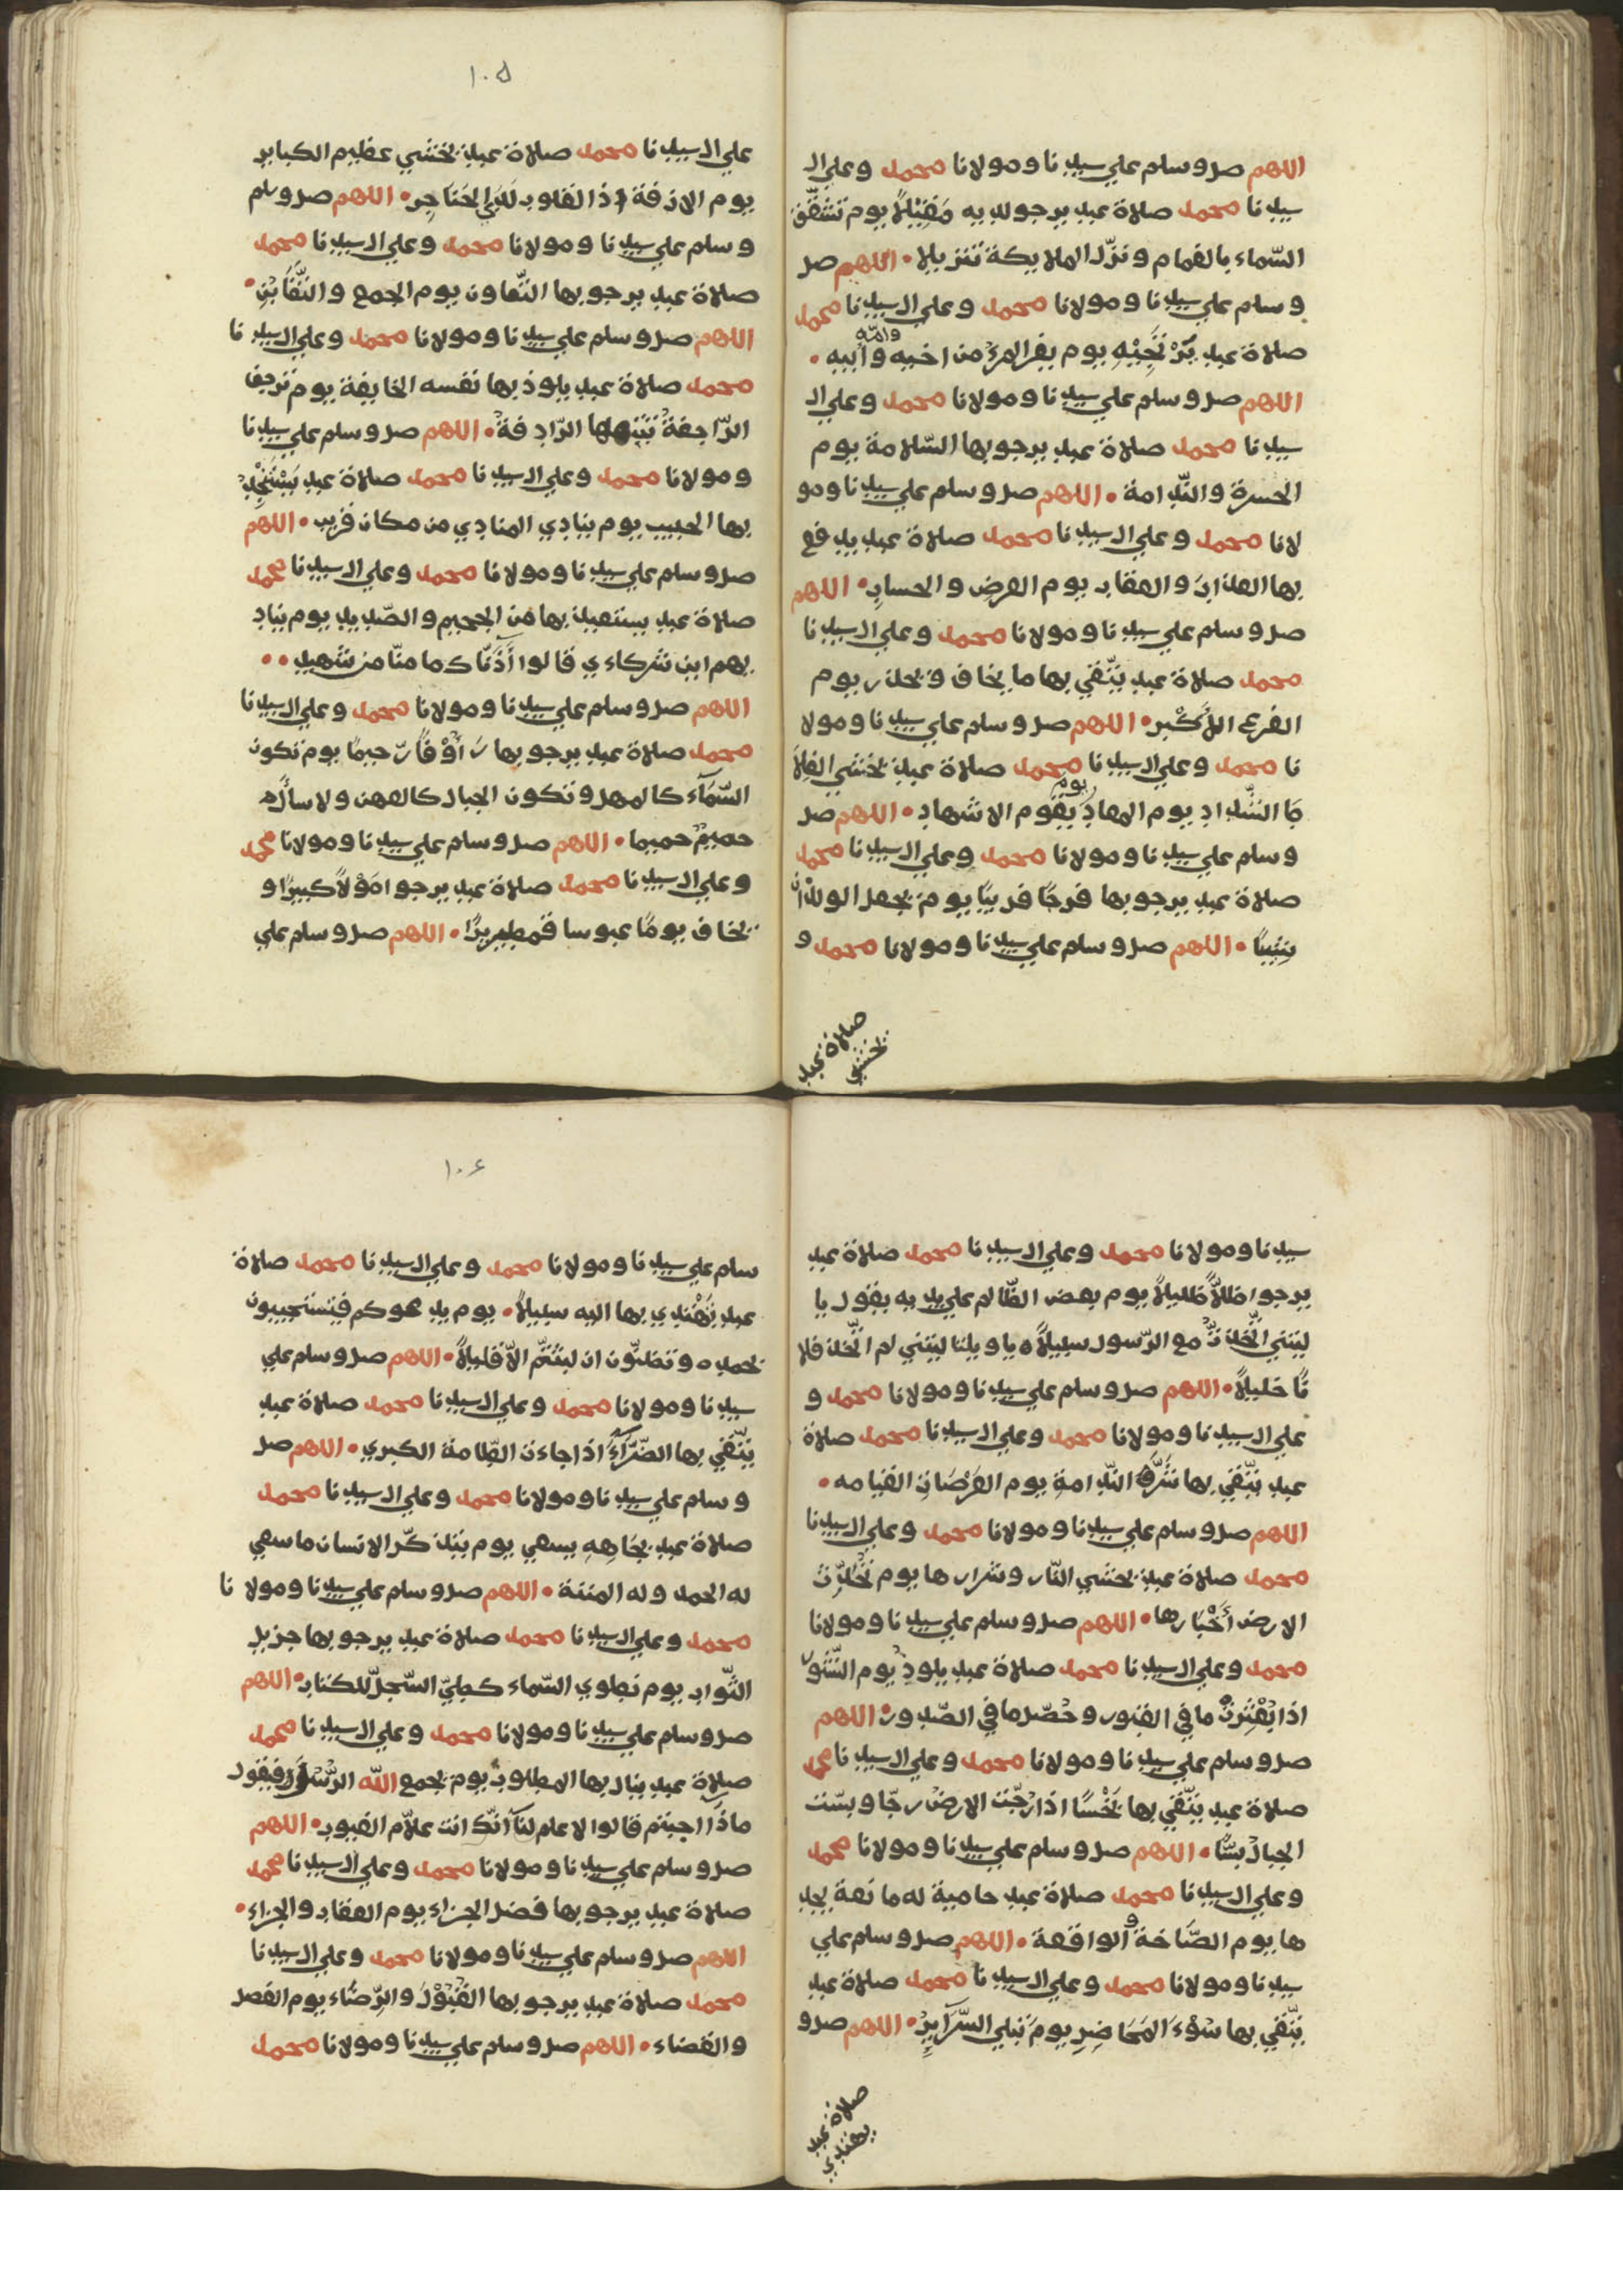 اللهم صل وسلم علي سيدنا ومولانا محمد وعلي ال
سيدنا محمد صلاة عبد يرجو لديه مَقِيْلاً يوم تشقّق
السّماء بالغمام ونزّل الملايكة تنزيلا • اللهم صل
وسلم علي سيدنا ومولانا محمد وعلي ال سيدنا محمد
صلاة عبد تُنْجِيْهِ يوم يفر المرؤ من اخيه وامّه وابيه •
اللهم صل وسلم علي سيدنا ومولانا محمد وعلي ال
سيدنا محمد صلاة عبد يرجو بها السّلامة يوم
الحسرة والنّدامة • اللهم صل وسلم علي سيدنا ومو
لانا محمد وعلي ال سيدنا محمد صلاة عبد يدفع
بها العذابَ والعقاب يوم العرض والحسابِ • اللهم
صل وسلم علي سيدنا ومولانا محمد وعلي ال سيدنا
محمد صلاة عبد يتّقي بها ما يخاف ويحذر يوم
الفزع الاَكْبر • اللهم صل وسلم علي سيدنا ومولا
نا محمد وعلي ال سيدنا محمد صلاة عبد يخشي الغلا
ظ الشّداد يوم المعادِ يوم يقوم الاشهاد • اللهم صل
وسلم علي سيدنا ومولانا محمد وعلي ال سيدنا محمد
صلاة عبد يرجو بها فرجًا قريبًا يوم يجعل الولدان
شيبًا • اللهم صل وسلم علي سيدنا ومولانا محمد و
صلاة عبد
يخشي
١٠۵
علي ال سيدنا محمد صلاة عبد يخشي عظيم الكباير
يوم الازفة اذ القلوب لَدَي الحَناجِر • اللهم صل وسلم
وسلم علي سيدنا ومولانا محمد وعلي ال سيدنا محمد
صلاة عبد يرجو بها التّعاون يوم الجمع والتّغَابُنِ •
اللهم صل وسلم علي سيدنا ومولانا محمد وعلي ال سيد نا
محمد صلاة عبد يلوذ بها نفسه الخايفة يوم ترجف
الرّاجفةُ تتبعها الرّادفةُ • اللهم صل وسلم علي سيدنا
ومولانا محمد وعلي ال سيدنا محمد صلاة عبد يَسْتَنْجِدُ
بها الحبيب يوم ينادي المنادي من مكان قريب • اللهم
صل وسلم علي سيدنا ومولانا محمد وعلي ال سيدنا محمد
صلاة عبد يستعيذ بها من الجحيم والصّديد يوم يناد
يهم اين شركاءي قالوا آذَنّاك ما منّا من شهيد ••
اللهم صل وسلم علي سيدنا ومولانا محمد وعلي ال سيدنا
محمد صلاة عبد يرجو بها رَؤُوْفًا رّحيمًا يوم تكون
السّمَآء كالمهل وتكون الجبال كالعهن ولا يسأَل
حميمٌ حميما • اللهم صل وسلم علي سيدنا ومولانا محمد
وعلي ال سيدنا محمد صلاة عبد يرجوا مَوْلاً كبيرًا و
يخاف يومًا عبوسا قمطيريرًا • اللهم صل وسلم علي
سيدنا ومولانا محمد وعلي ال سيدنا محمد صلاة عبد
يرجوا ظلاًّ ظليلاً يوم يعض الظّالم علي يديه يقول يا
ليتني اتّخذتُ مع الرّسول سبيلاً ه يا ويلتا ليتني لم اتّخذ فلا
نًا خليلاً • اللهم صل وسلم علي سيدنا ومولانا محمد و
علي ال سيدنا ومولانا محمد وعلي ال سيدنا محمد صلاة
عبد يتّقي بها شَرَّ النّدامةِ يوم العَرْصَاتِ القيامه •
اللهم صل وسلم علي سيدنا ومولانا محمد وعلي ال سيدنا
محمد صلاة عبد يخشي النّار وشرارها يوم تُحَدِّث
الارض أَخْبَارها • اللهم صل وسلم علي سيدنا ومولانا
محمد وعلي ال سيدنا محمد صلاة عبد يلوذُ يوم النّشور
اذا بُعْثِرتْ ما في القبور وحُصّل ما في الصّدور • اللهم
صل وسلم علي سيدنا ومولانا محمد وعلي ال سيدنا محمد
صلاة عبد يتّقي بها بَخْسًا اذا رُجّت الارض رجّا وبسّت
الجبالُ بسًّا • اللهم صل وسلم علي سيدنا ومولانا محمد
وعلي ال سيدنا محمد صلاة عبد حامية له مانعة يجد
ها يوم الصّاخة والواقعة • اللهم صل وسلم علي
سيدنا ومولانا محمد وعلي ال سيدنا محمد صلاة عبد
يتّقي بها سُوْءَ المَحَاضِرِ يومَ تبلي السّرَآيِرُ • اللهم صل و
صلاة عبد
يهتدي
١٠۶
سلم علي سيدنا ومولانا محمد وعلي ال سيدنا محمد صلاة
عبد يَهْتدي بها اليه سبيلاً • يوم يدعوكم فتستجيبون
بحمده وتظنّون ان لبثتم الاّ قليلاً • اللهم صل وسلم علي
سيدنا ومولانا محمد وعلي ال سيدنا محمد صلاة عبد
يتّقي بها الضّرّآءَ اذا جاءت الطّامة الكبري • اللهم صل
وسلم علي سيدنا ومولانا محمد وعلي ال سيدنا محمد
صلاة عبد بجَاهِهِ يسعي يوم يتذكّر الانسان ما سعي
له الحمد وله المنة • اللهم صل وسلم علي سيدنا ومولا نا
محمد وعلي ال سيدنا محمد صلاة عبد يرجو بها جزيل
الثّواب يوم نطوي السّماء كطيّ السّجلّ للكتاب • اللهم
صل وسلم علي سيدنا ومولانا محمد وعلي ال سيدنا محمد
صلاة عبد ينال بها المطلوب يوم يجمع اللّه الرُّسُل فيقول
ماذَا اجبتم قالوا لا علم لنَآ انّك انت علاّم الغيوب • اللهم
صل وسلم علي سيدنا ومولانا محمد وعلي ال سيدنا محمد
صلاة عبد يرجو بها فضل الجزاء يوم العقاب والجزاء •
اللهم صل وسلم علي سيدنا ومولانا محمد وعلي ال سيدنا
محمد صلاة عبد يرجو بها القُبُوْلَ والرّضَاء يوم الفصل
والقضاء • اللهم صل وسلم علي سيدنا ومولانا محمد